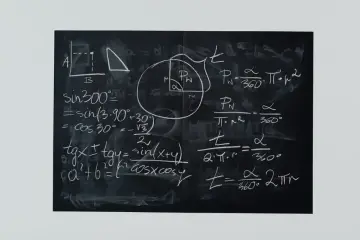 A
B
sin300°=
=sin(3·90°+30°)
=-cos30°=-√3/2
tgx ± tgy = sin(x±y)/cosxcosy
a²+b²=c²
P_N
α
t
P_N = α/360° π·r²
P_N/π·r² = α/360°
t/2·π·r = α/360°
t = α/360° 2πr